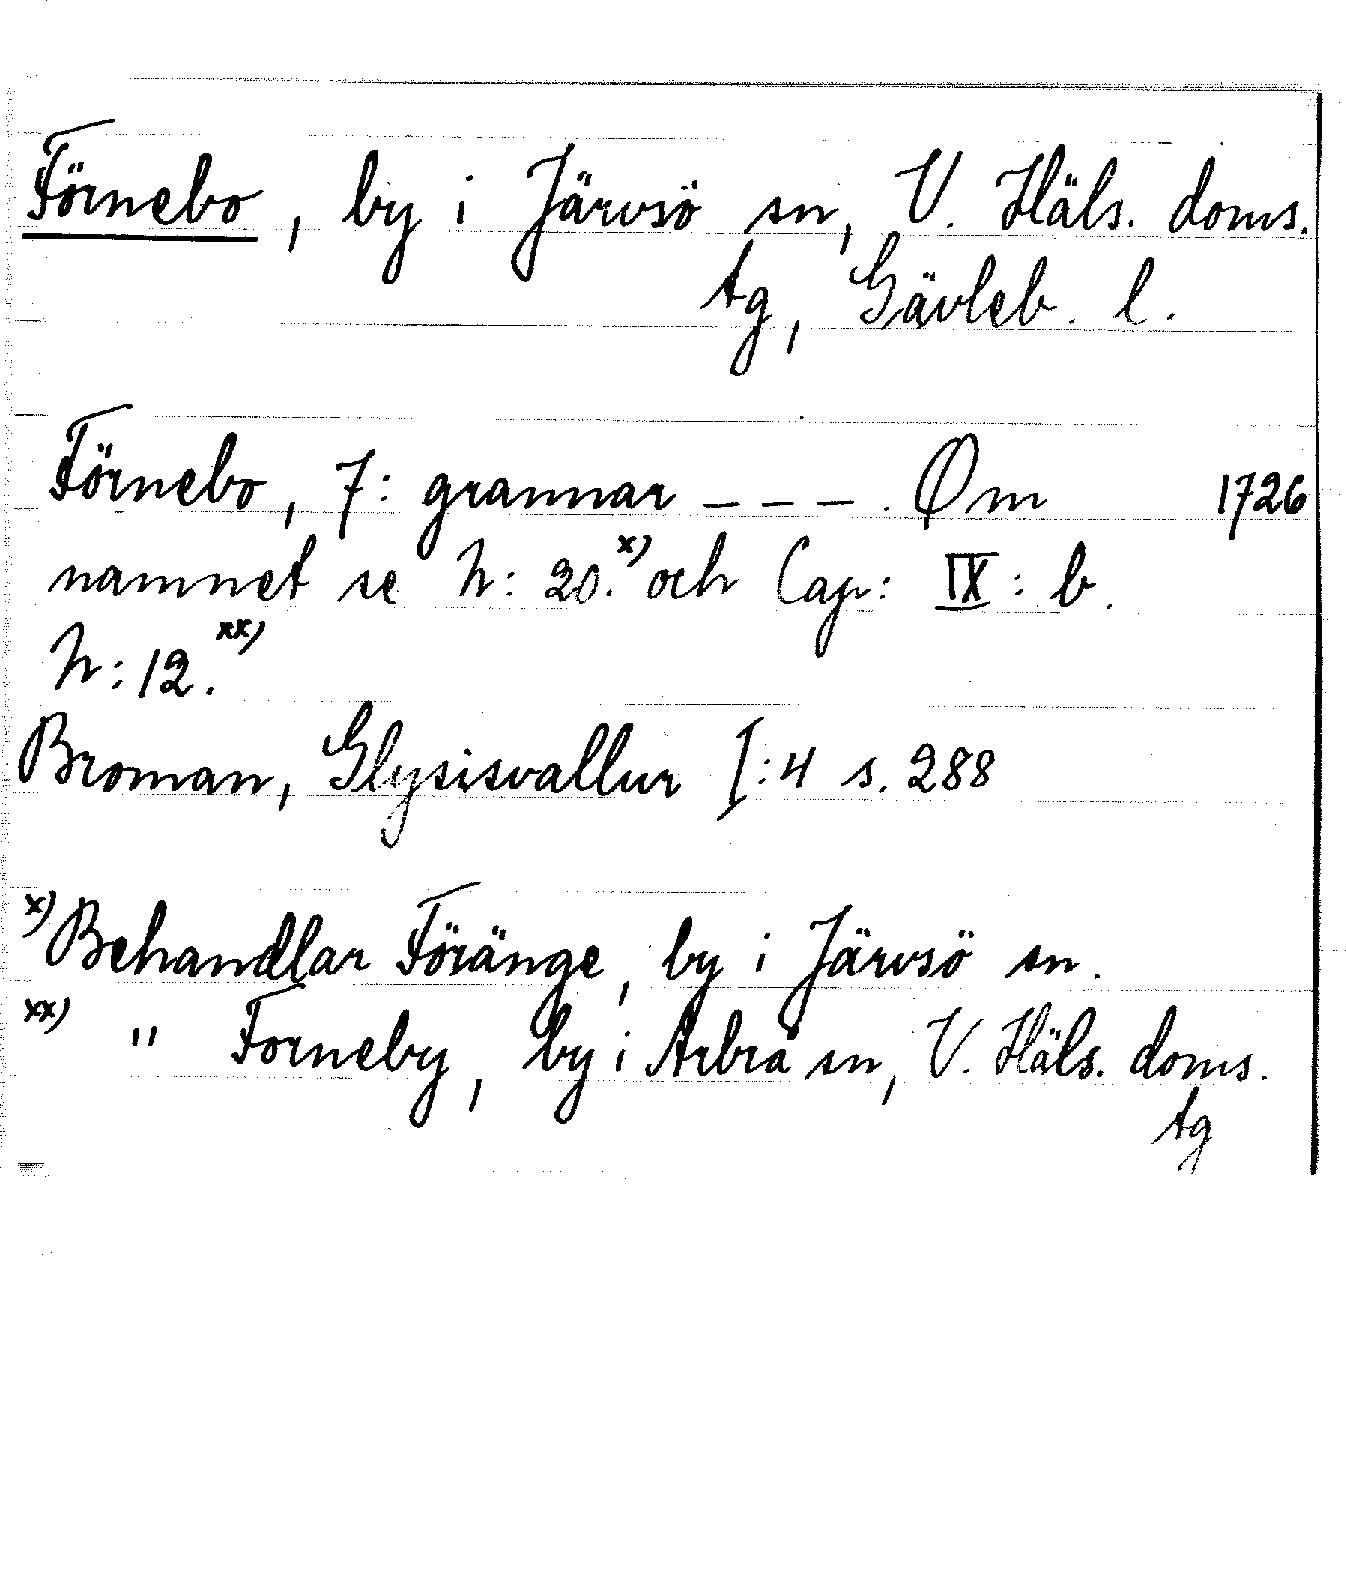 Förnebo, by i Järvsö sn, V. Häls. doms.
tg, Gävleb. l.
Förnebo, 7: grannar _ _ _ . Om 1726
namnet se N: 20.x) och Cap: IX : b.
N: 12.xx)
Broman, Glysisvallur I:4 s. 288
x) Behandlar Föränge, by i Järvsö sn.
xx) " Forneby, by i Arbrå sn, V. Häls. doms.
tg